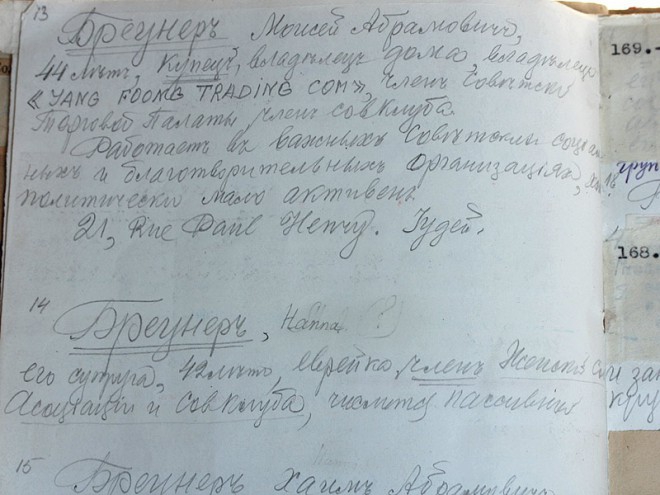 13
Бреунеръ Моисей Абрамовичъ,
44 лѣтъ, купецъ, владѣлецъ дома, владѣлецъ
«YANG FOONG TRADING COM», членъ Совѣтской
Торговой Палаты, членъ совклуба.
Работаетъ въ важныхъ Совѣтскихъ социаль
ныхъ и благотворительныхъ организаціяхъ,
политически мало активенъ
21, Rue Paul Henry. Іудей.
14
Бреунеръ, Наппа (?)
его супруга, 42 лѣтъ, еврейка, членъ Женской
Асоціаціи и Совклуба, числится пассивной
15
Бреунеръ Хаимъ Абрамовичъ
169.-
груп
168.-